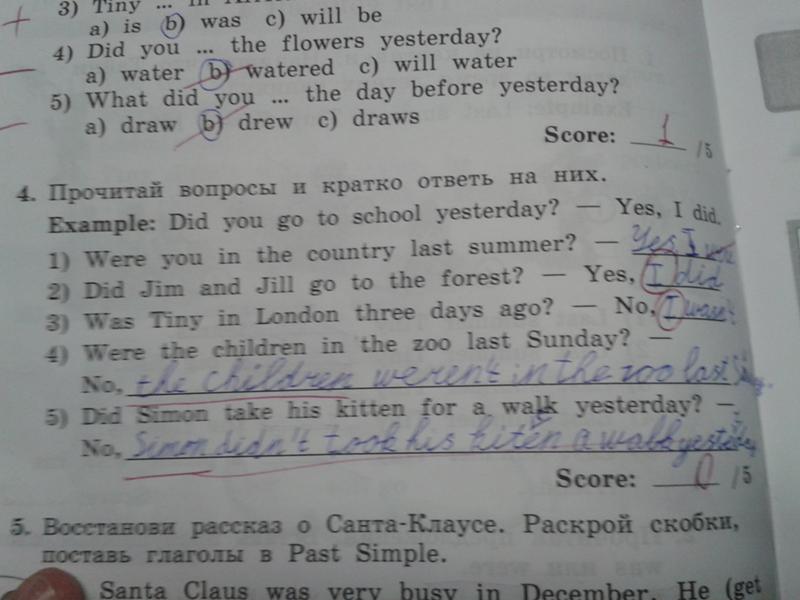 3) Tiny ... in
a) is b) was c) will be
4) Did you ... the flowers yesterday?
a) water b) watered c) will water
5) What did you ... the day before yesterday?
a) draw b) drew c) draws
Score: 1 /5
4. Прочитай вопросы и кратко ответь на них.
Example: Did you go to school yesterday? — Yes, I did.
1) Were you in the country last summer? — Yes, I
2) Did Jim and Jill go to the forest? — Yes, I did
3) Was Tiny in London three days ago? — No, I wasn't
4) Were the children in the zoo last Sunday? —
No, the children weren't in the zoo last
5) Did Simon take his kitten for a walk yesterday? —
No, Simon didn't took his kiten a walk yesterday
Score: 0 /5
5. Восстанови рассказ о Санта-Клаусе. Раскрой скобки,
поставь глаголы в Past Simple.
Santa Claus was very busy in December. He (get